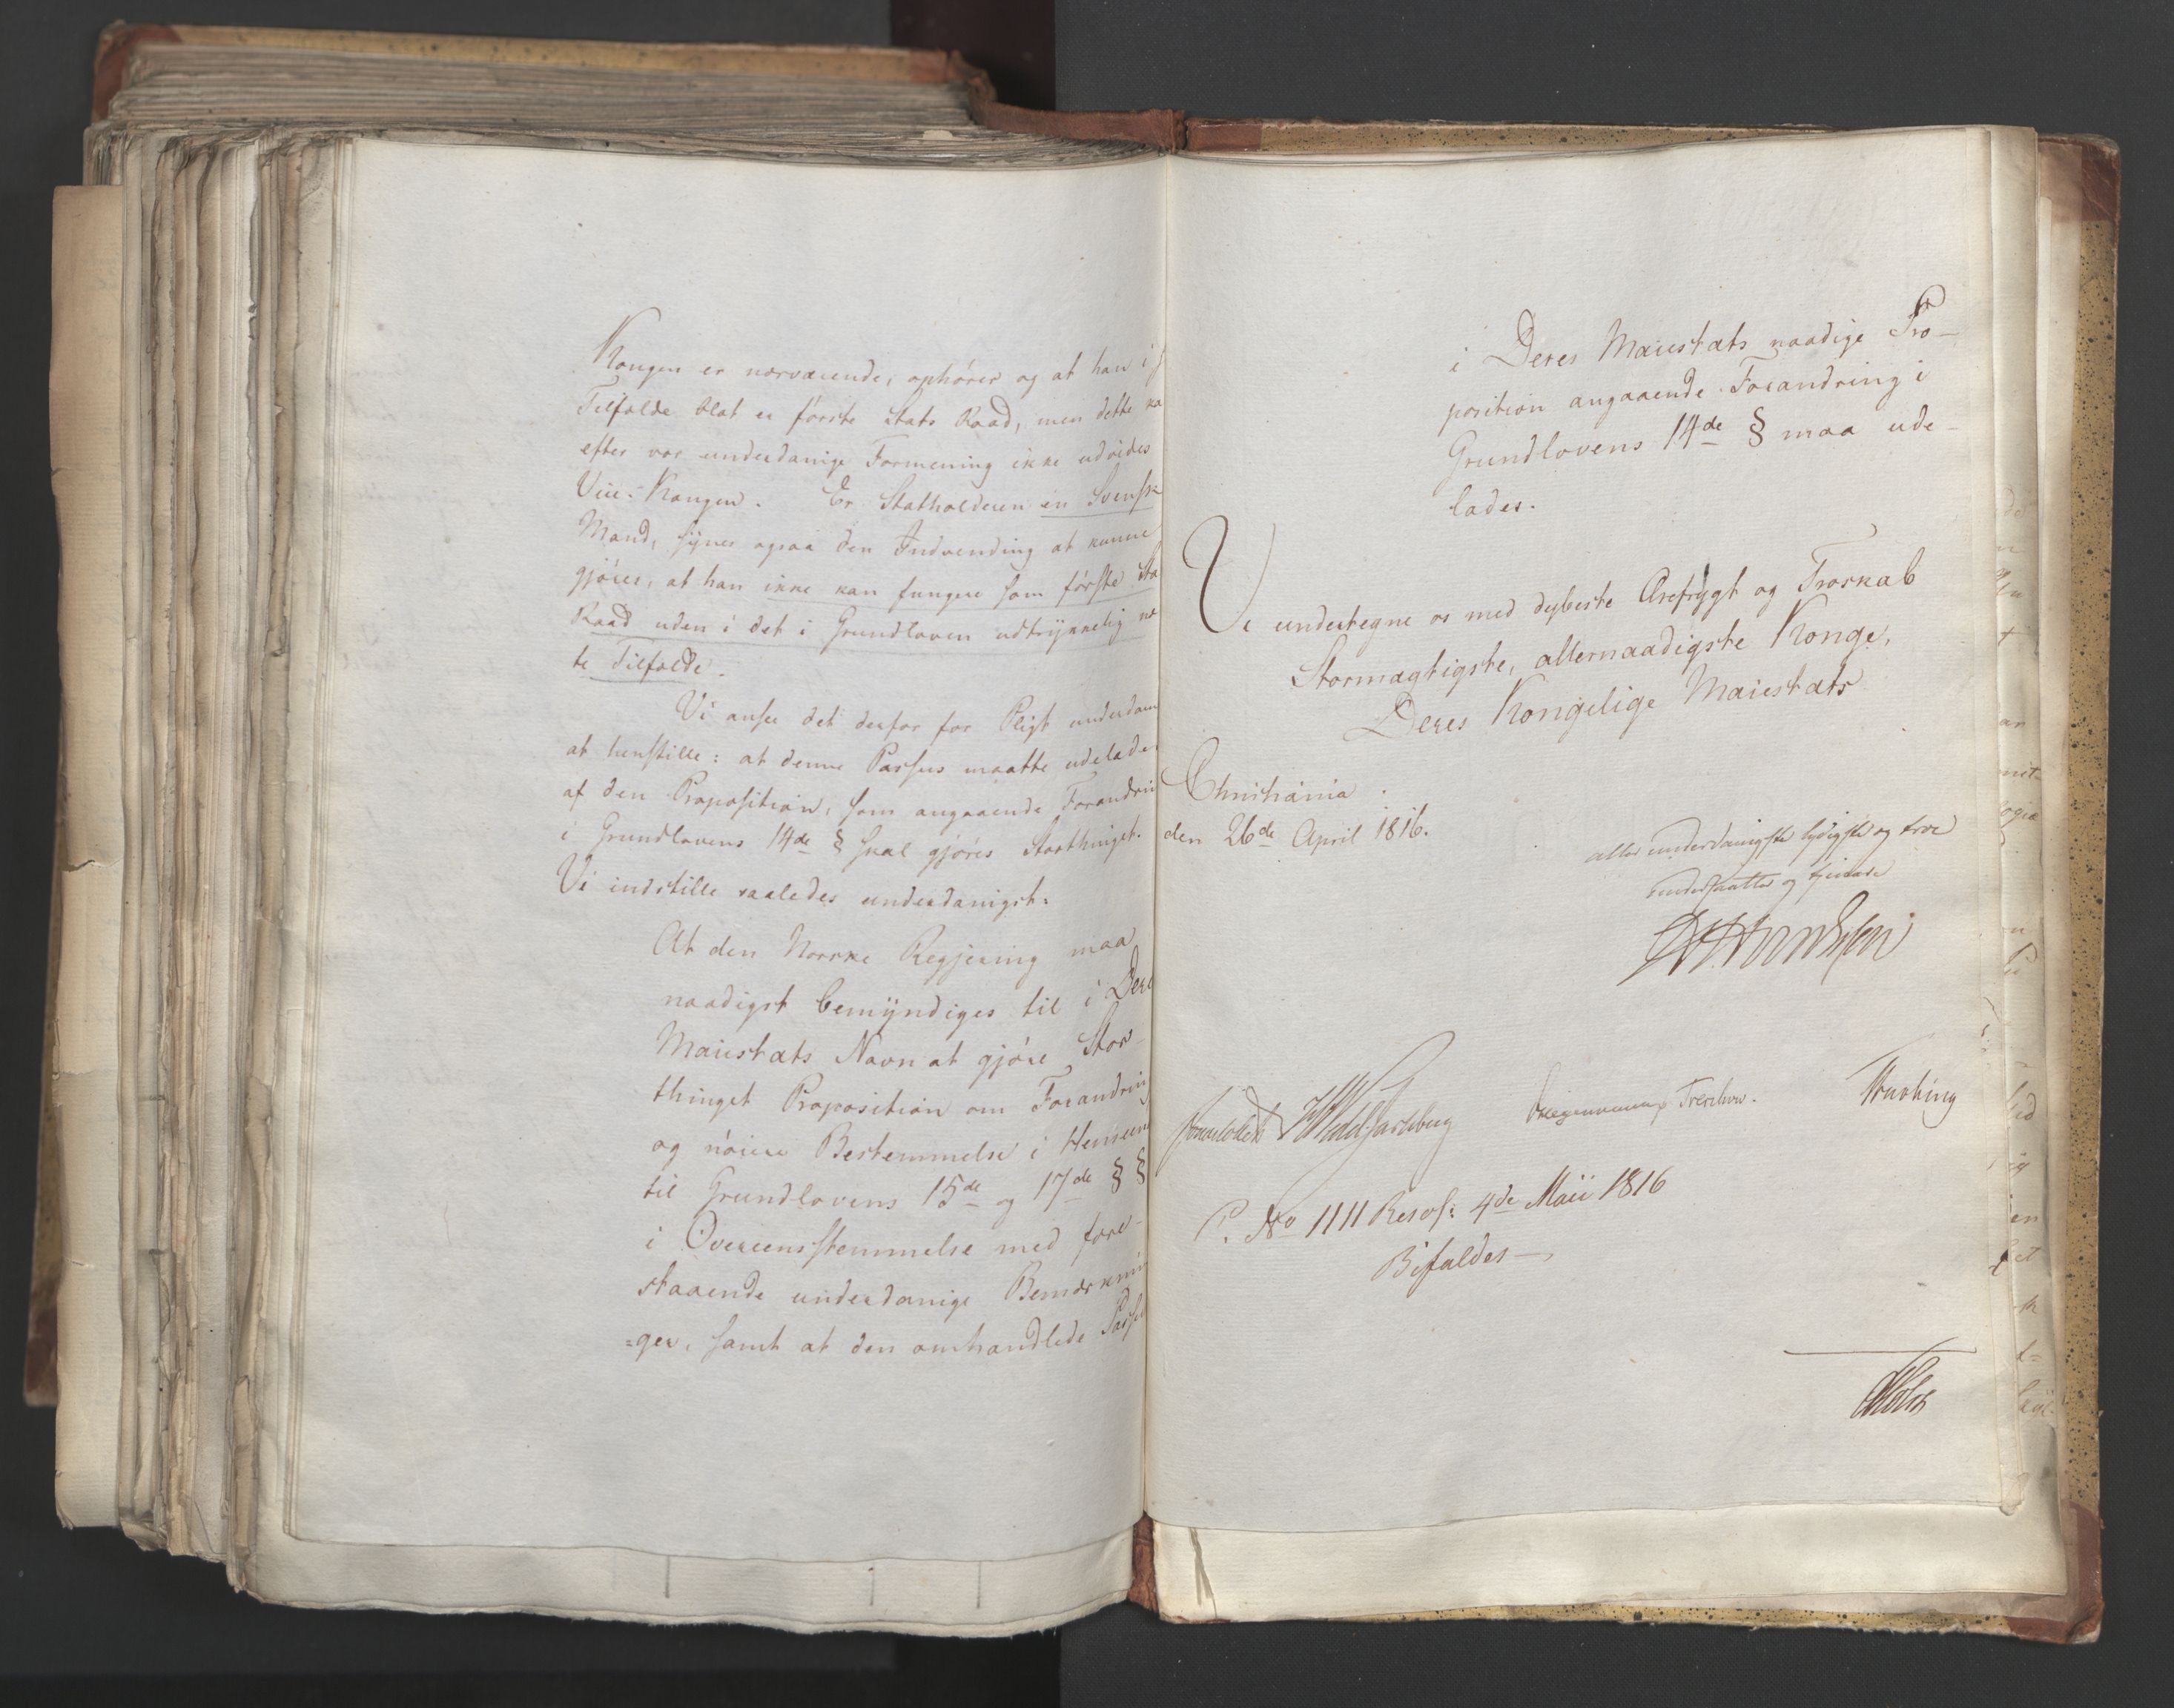 Kongen er nærværende, ophører og at han i
Tilfælde blot er første Stats Raad, men dette ka
efter vor underdanige Formening ikke udvides
Vice-Kongen. Er Statholderen en Svensk
Mand, sÿnes ogsaa den Indvending at kunne
gjöres, at han ikke kan fungere som förste Sta
Raad uden i det i Grundloven udtrÿkkelig næ
te Tilfælde.
Vi ansee det derfor for Pligt underdan
at henstille: at denne Passus maatte udelade
af den Proposition, som angaaende Forandrin
i Grundlovens 14de § skal gjöres Storthinget.
Vi indstille saaledes underdanigst:
At den Norske Regjering maa
naadigst bemÿndiges til i Dere
Maiestæts Navn at gjöre Stor-
thinget Proposition om Forandrin
og nöiere Bestemmelse i Henseen
til Grundlovens 15de og 17de § §
i Overeensstemmelse med fore-
staaende underdanige Bemærknin
=ger, samt at den omhandlede Passu
i Deres Maiestæts naadige Pro-
position angaaende Forandring i
Grundlovens 14de § maa ude-
lades.
Vi undertegne os med dybeste Ærefrygt og Troskab
Stormægtigste, allernaadigste Konge,
Deres Kongelige Maiestæts
Christiania
den 26de April 1816.
allerunderdanigste lydigste og troe
undersaatter og tjenere
Sommerhielm HWedel Jarlsberg Krogemann Treschow.
P. No 1111 Resol: 4de Maii 1816
Bifaldes –
Holst